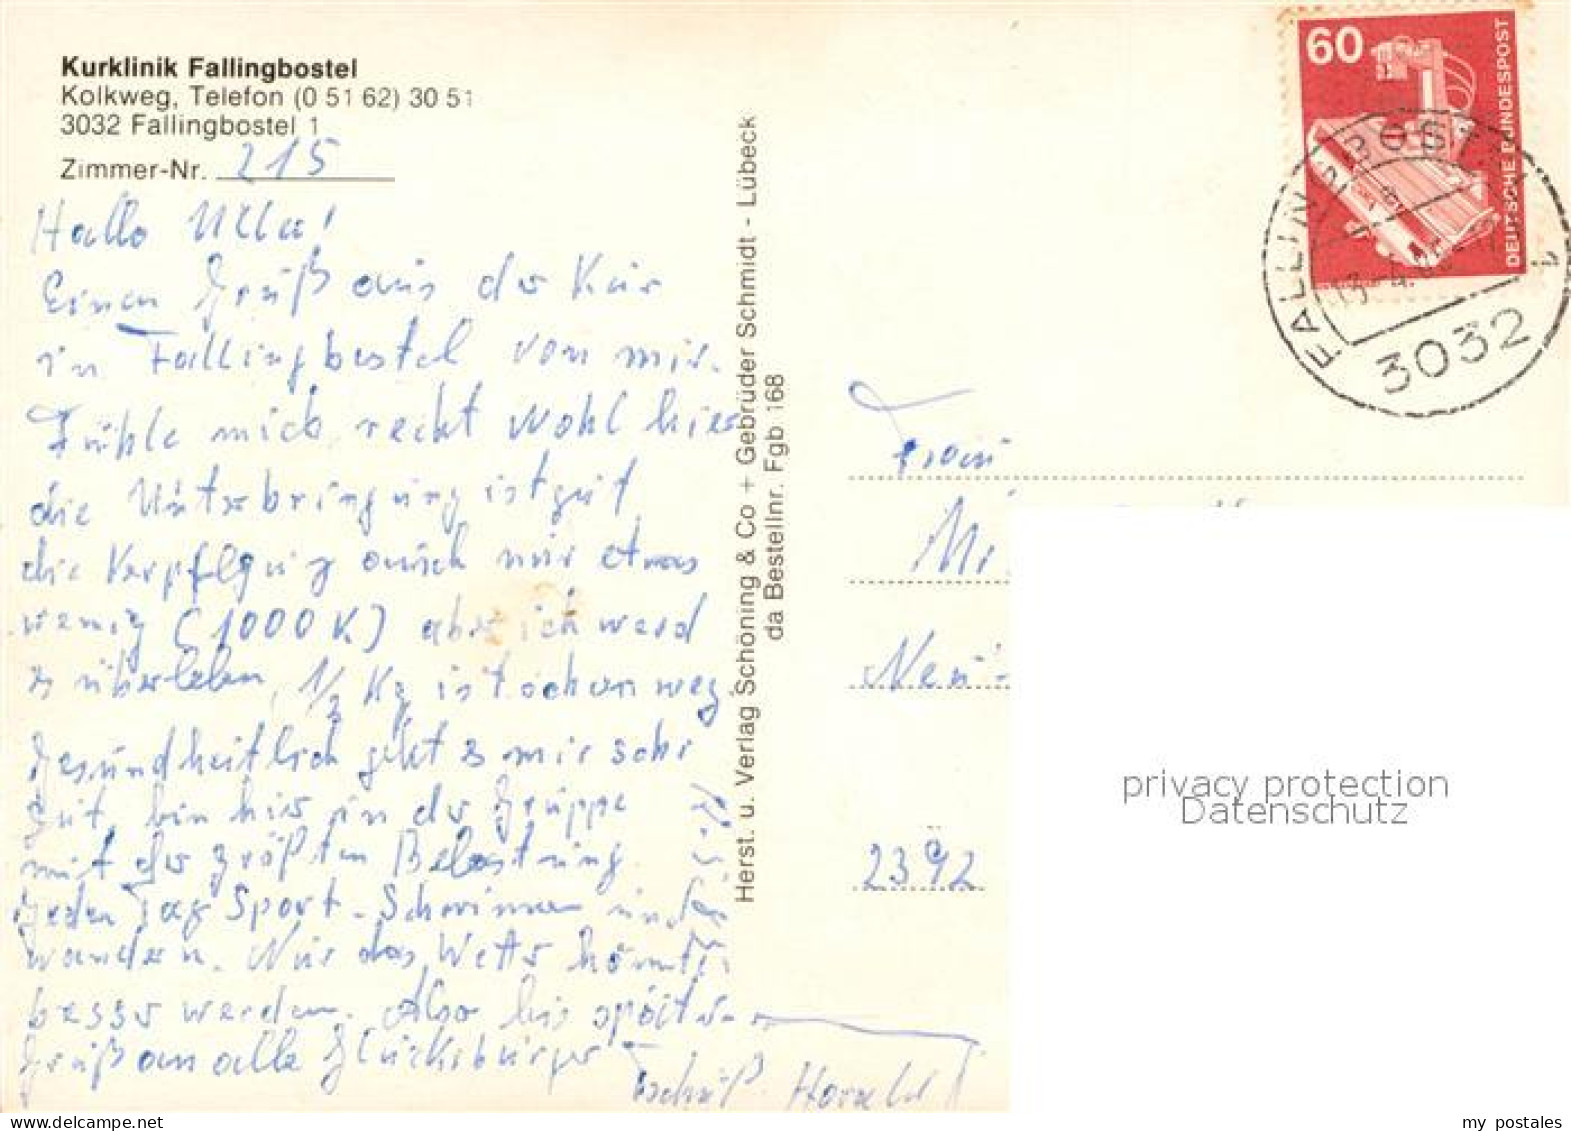 Kurklinik Fallingbostel
Kolkweg, Telefon (0 51 62) 30 51
3032 Fallingbostel 1
Zimmer-Nr. 215
Hallo Ulla!
Einen Gruß aus der Kur
in Fallingbostel von mir.
Fühle mich recht wohl hier
die Unterbringung ist gut
die Verpflgung auch nur etwas
wenig (1000 K) aber ich werd
es überleben, 1/2 Kg ist schon weg.
Gesundheitlich geht es mir sehr
gut, bin hier in der Gruppe
mit der größten Belastung.
Jeden Tag Sport - Schwimmen und
wandern. Nur das Wetter könnte
besser werden. Also bis später
Gruß an alle Glücksburger
Tschüß Harald
Herst. u. Verlag Schöning & Co + Gebrüder Schmidt - Lübeck
da Bestellnr. Fgb 168
60
DEUTSCHE BUNDESPOST
FALLINGBOSTEL 1
3032
Frau
Neu-
2392
privacy protection
Datenschutz
my_postales